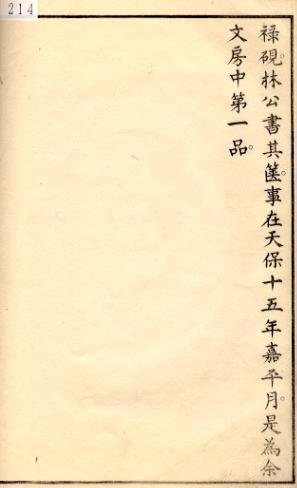 214
禄硯。林公書其篋。事在天保十五年嘉平月。是為余
文房中第一品。